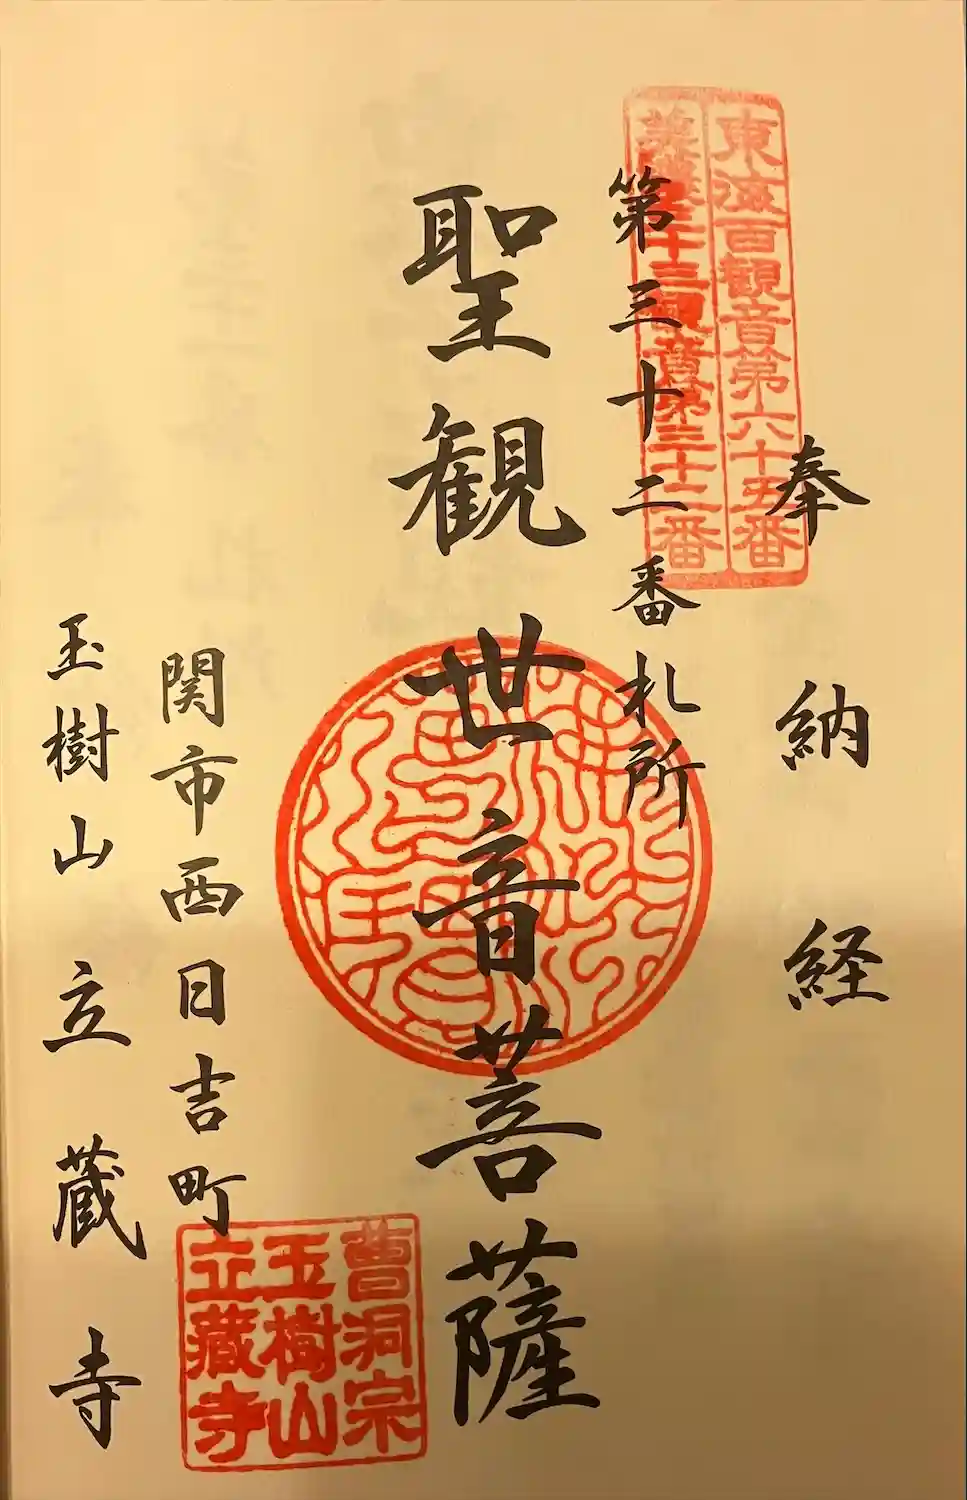 奉納経
東海百観音第六十五番
美濃三十三観音第三十二番
第三十二番札所
聖観世音菩薩
関市西日吉町
玉樹山立蔵寺
曹洞宗
玉樹山
立藏寺